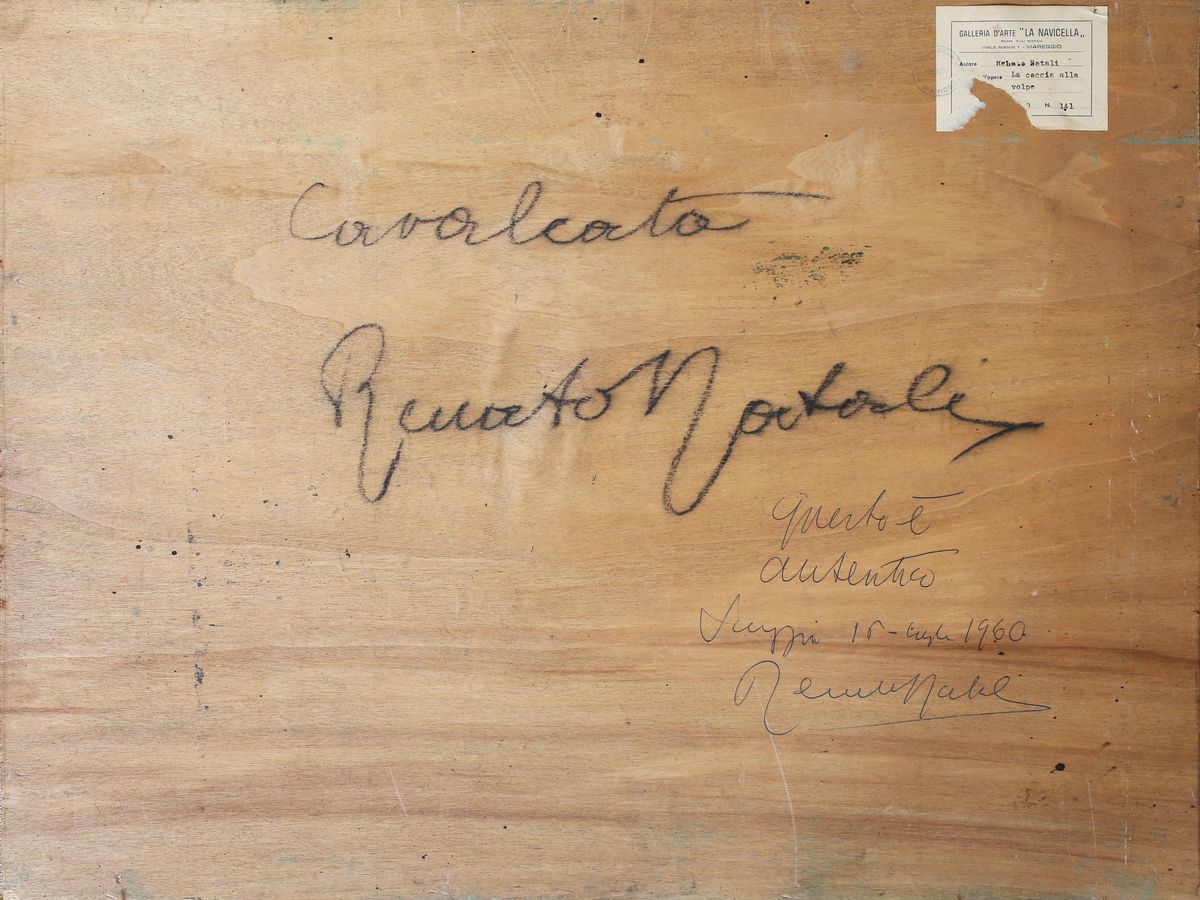 GALLERIA D'ARTE "LA NAVICELLA„
VIALE MANIN 1 - VIAREGGIO
Autore Renato Natali
L'opera La caccia alla
volpe
N. 141
Cavalcata
Renato Natali
questo è
autentico
15 - luglio 1960
Renato Natali